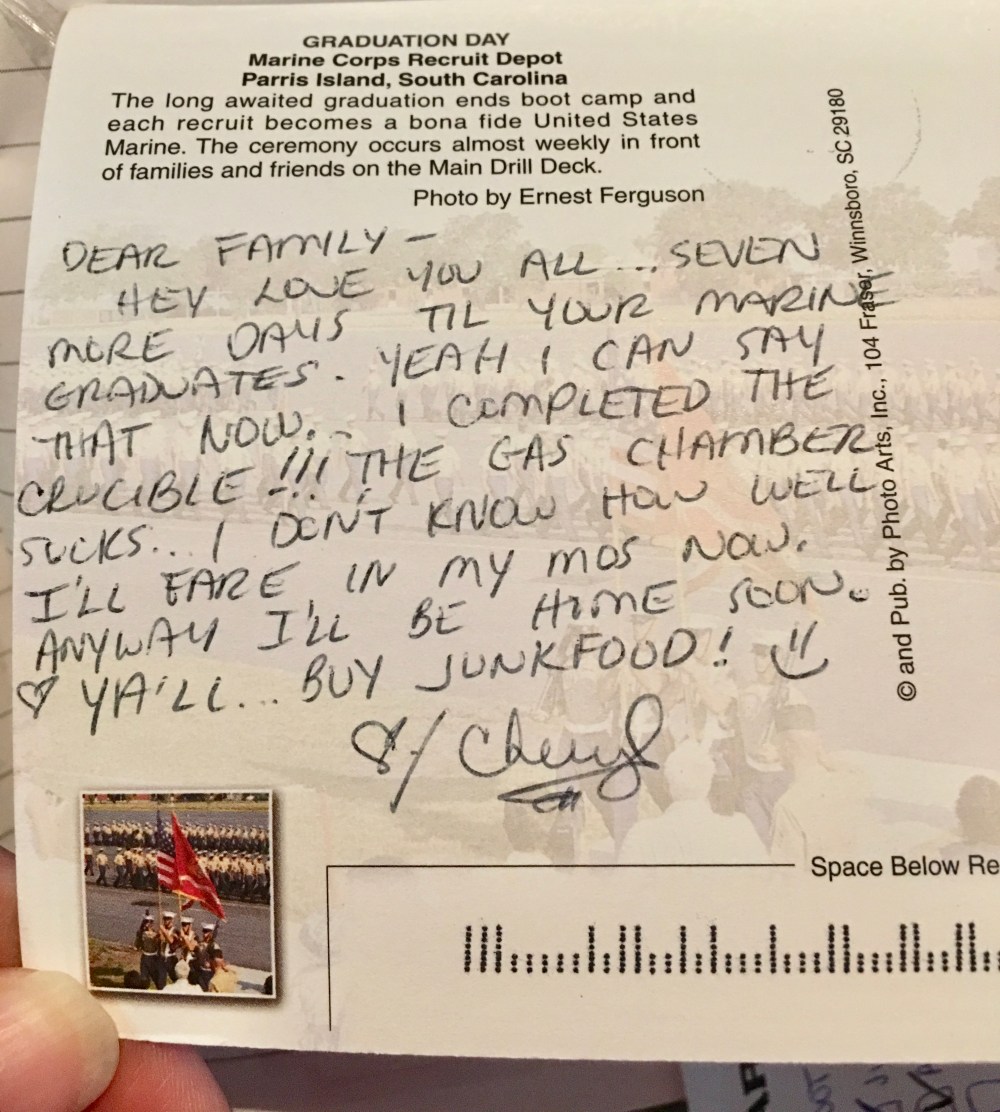 GRADUATION DAY
Marine Corps Recruit Depot
Parris Island, South Carolina
The long awaited graduation ends boot camp and
each recruit becomes a bona fide United States
Marine. The ceremony occurs almost weekly in front
of families and friends on the Main Drill Deck.
Photo by Ernest Ferguson
DEAR FAMILY –
HEY LOVE YOU ALL... SEVEN
MORE DAYS TIL YOUR MARINE
GRADUATES. YEAH I CAN SAY
THAT NOW... I COMPLETED THE
CRUCIBLE!!! THE GAS CHAMBER
SUCKS... I DON'T KNOW HOW WELL
I'LL FARE IN MY MOS NOW.
ANYWAY I'LL BE HOME SOON.
♡ YA'LL... BUY JUNKFOOD!
♡/ Cheryl
© and Pub. by Photo Arts, Inc., 104 Fraser, Winnsboro, SC 29180
Space Below Re